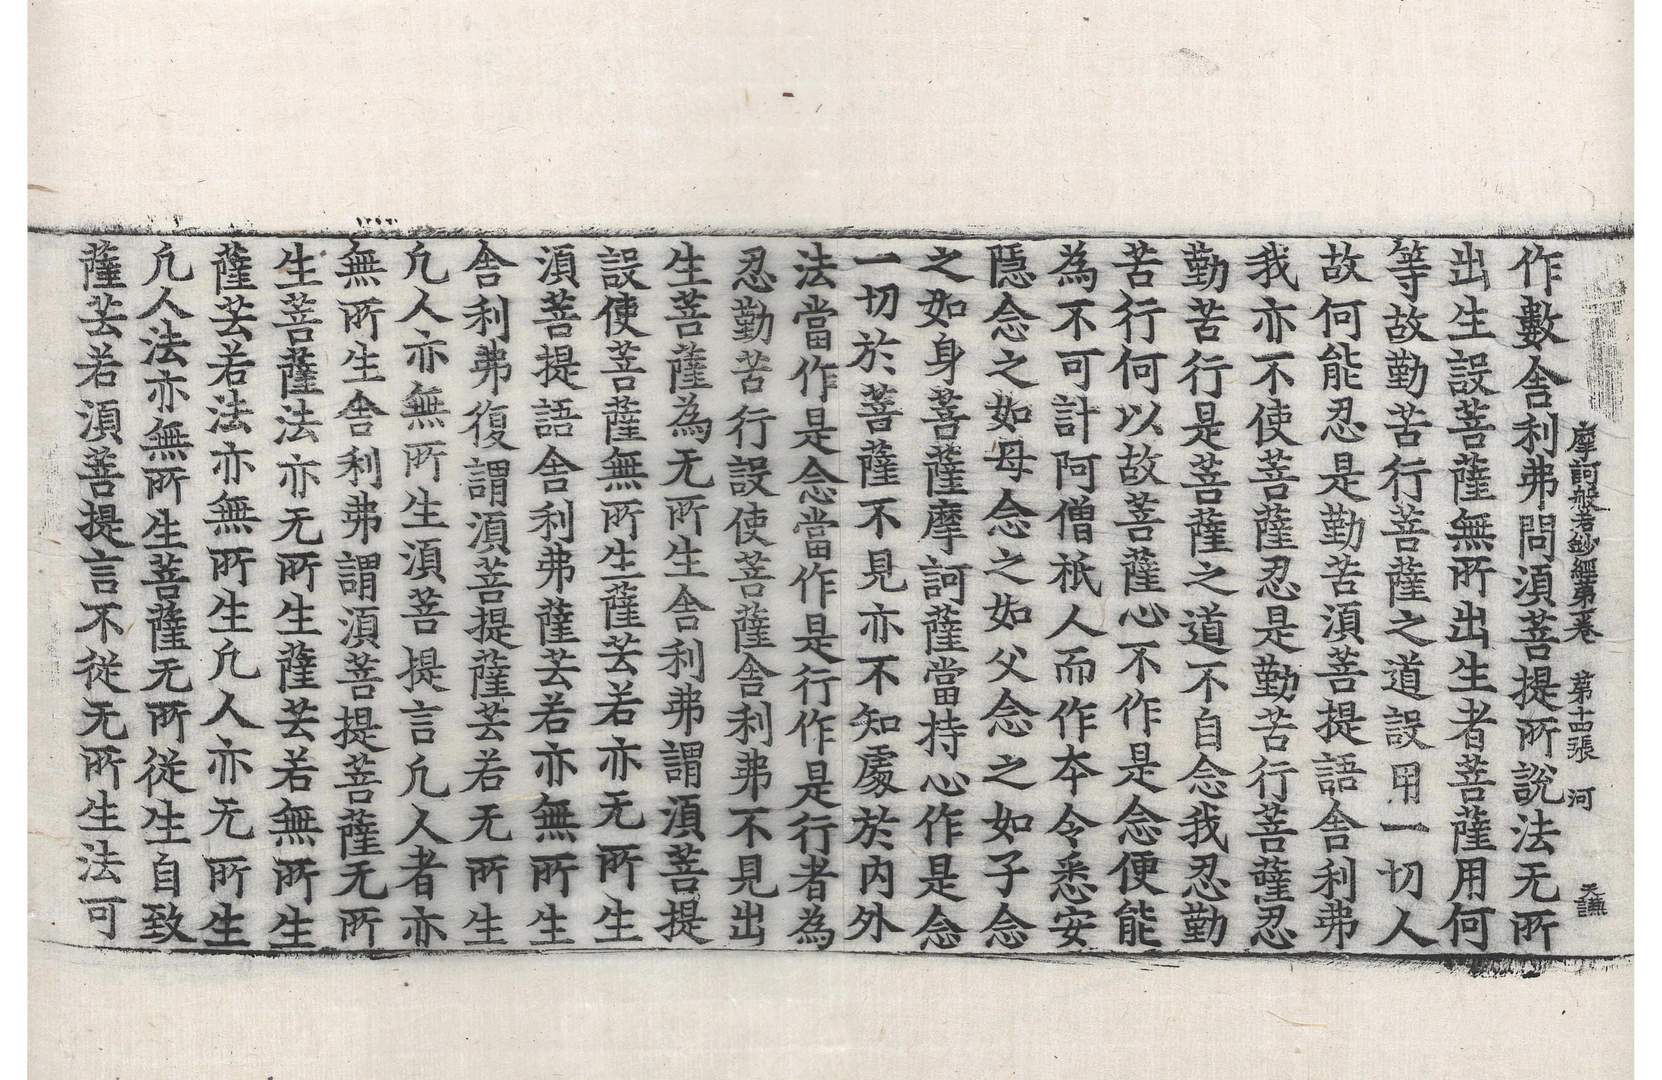 摩訶般若鈔經第一卷 第十四張 河 天謙
作數舍利弗問須菩提所說法无所
出生設菩薩無所出生者菩薩用何
等故勤苦行菩薩之道設用一切人
故何能忍是勤苦須菩提語舍利弗
我亦不使菩薩忍是勤苦行菩薩忍
勤苦行是菩薩之道不自念我忍勤
苦行何以故菩薩心不作是念便能
為不可計阿僧祇人而作夲令悉安
隱念之如母念之如父念之如子念
之如身菩薩摩訶薩當持心作是念
一切於菩薩不見亦不知處於內外
法當作是念當作是行作是行者為
忍勤苦行設使菩薩舍利弗不見出
生菩薩為无所生舍利弗謂須菩提
設使菩薩無所生薩芸若亦无所生
須菩提語舍利弗薩芸若亦無所生
舍利弗復謂須菩提薩芸若无所生
凡人亦無所生須菩提言凡人者亦
無所生舍利弗謂須菩提菩薩无所
生菩薩法亦无所生薩芸若無所生
薩芸若法亦無所生凡人亦无所生
凡人法亦無所生菩薩无所從生自致
薩芸若須菩提言不從无所生法可